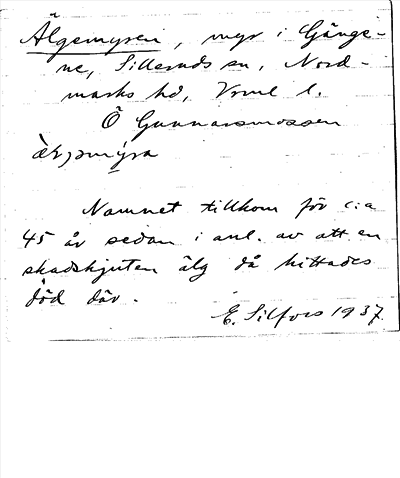 Älgemyren, myr i Gänge-
ne, Silleruds sn, Nord-
marks hd, Vrml l.
Ö Gunnarsmossen

Namnet tillkom för c:a
45 år sedan i anl. av att en
skadskjuten älg då hittades
död där.
E. Silfors 1937.